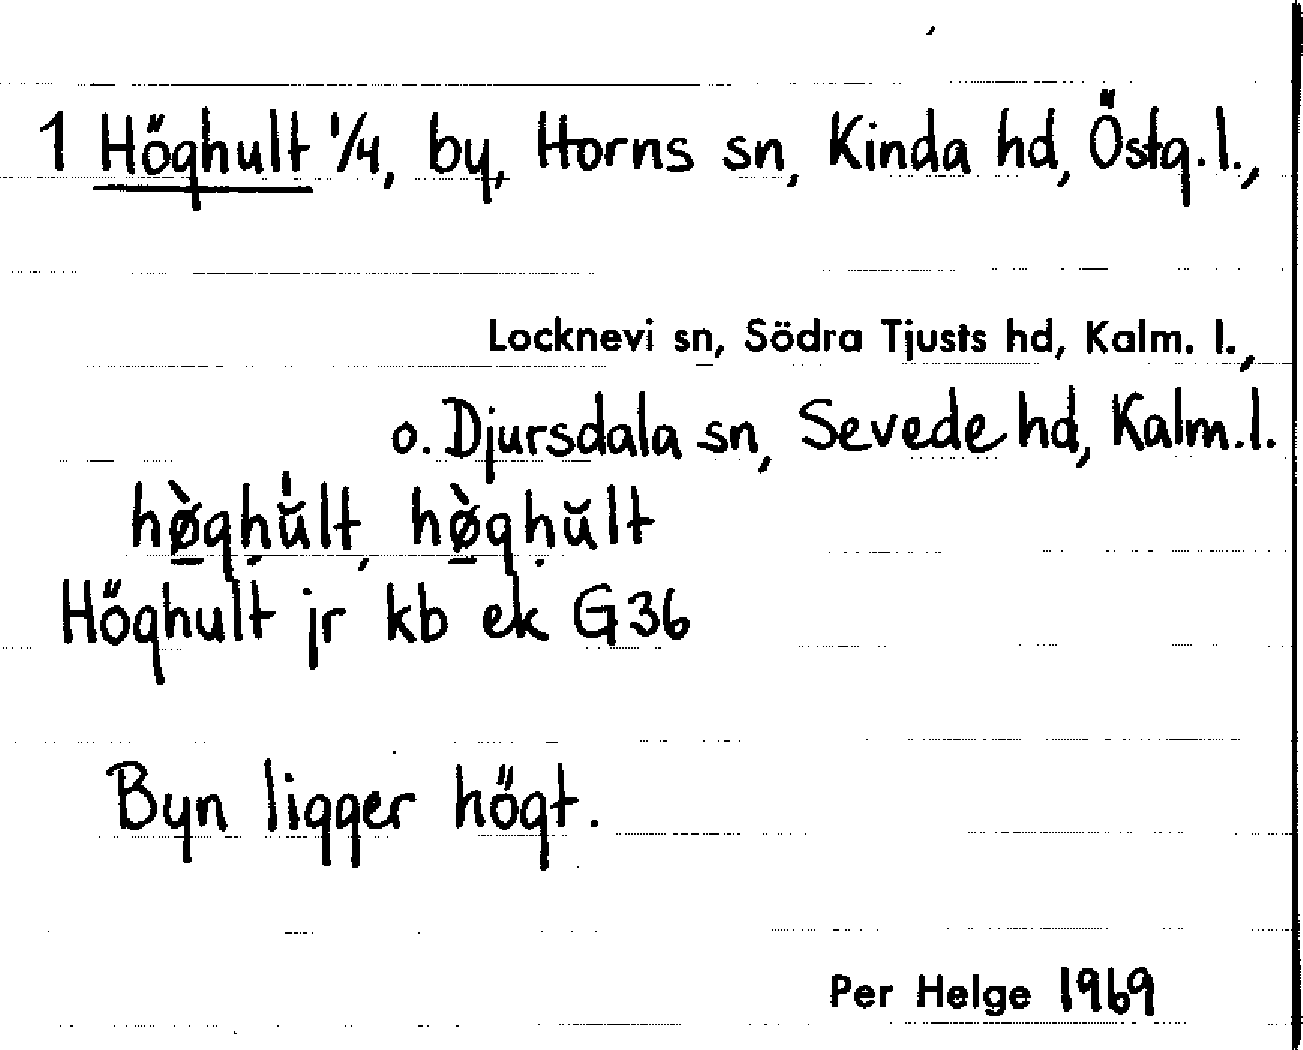 1 Höghult 1/4, by, Horns sn, Kinda hd, Östg. l.,
Locknevi sn, Södra Tjusts hd, Kalm. l.,
o. Djursdala sn, Sevede hd, Kalm. l.
hø̠̀gḥu̍̆lt, hø̠̀gḥŭlt
Höghult jr kb ek G36
Byn ligger högt.
Per Helge 1969